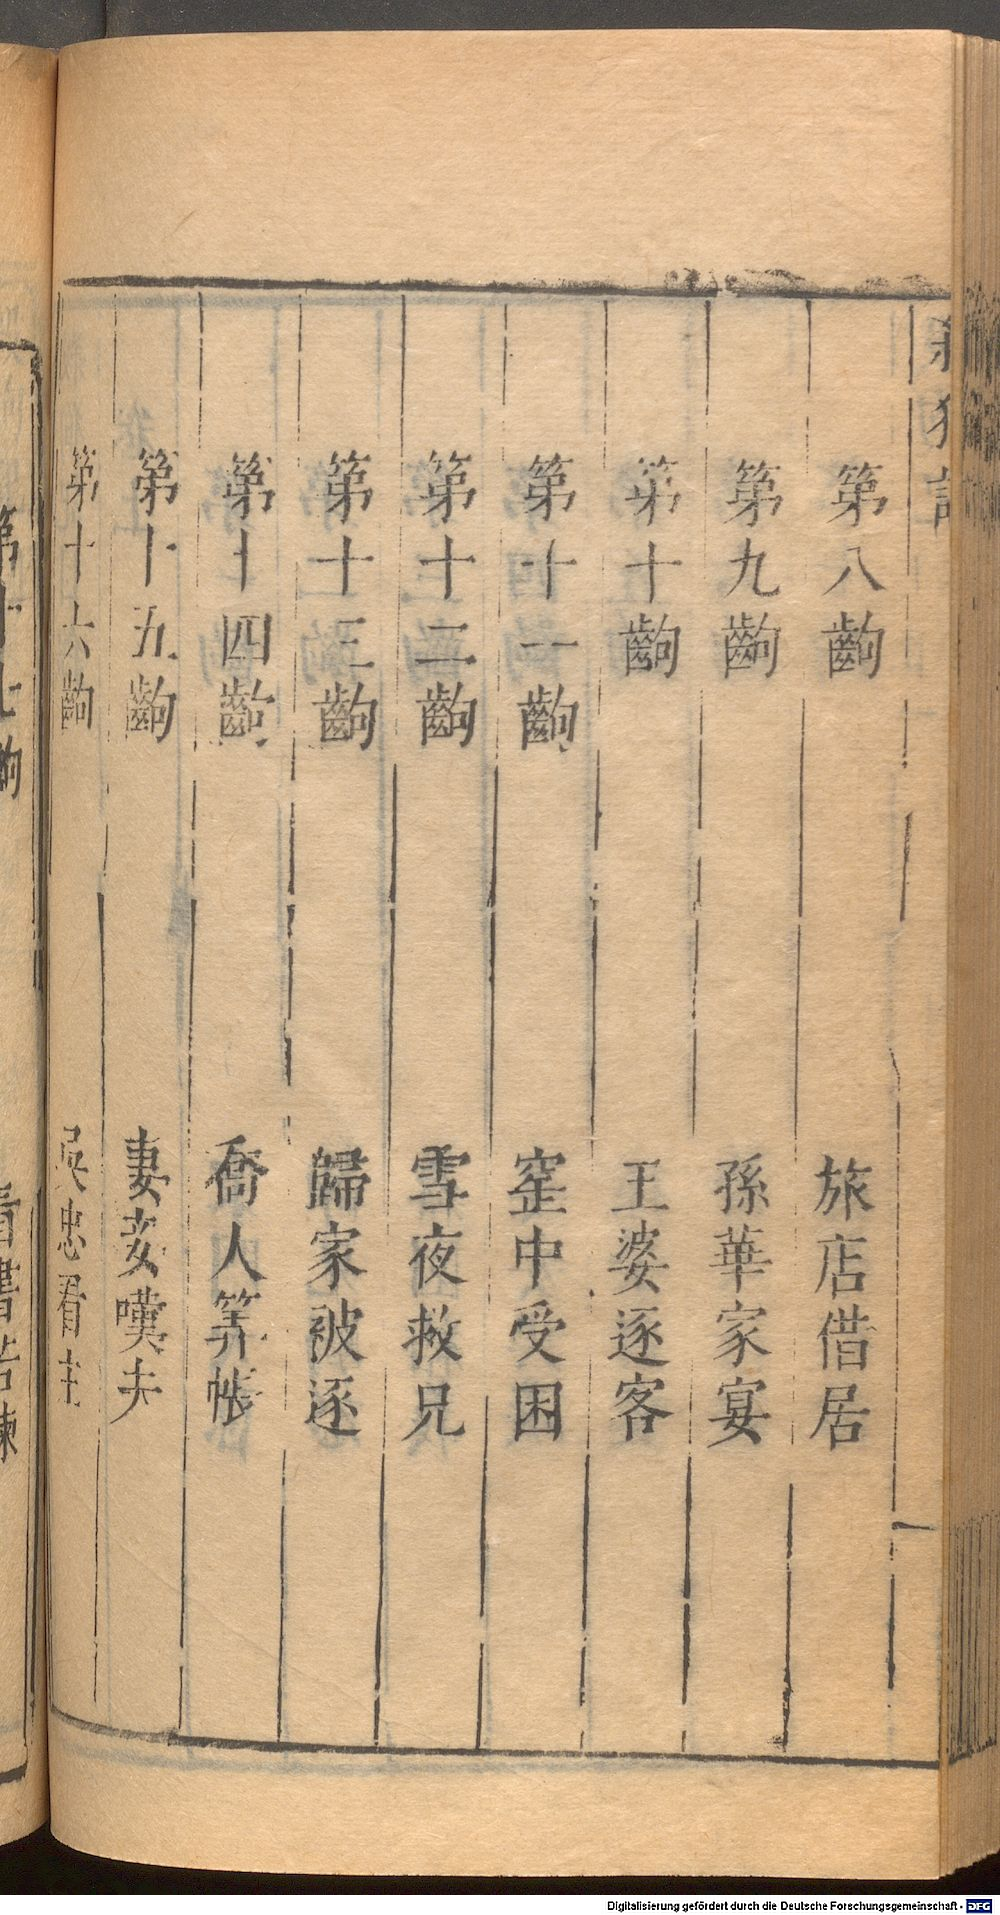 殺狗記
第八齣　旅店借居
第九齣　孫華家宴
第十齣　王婆逐客
第十一齣　窰中受困
第十二齣　雪夜救兄
第十三齣　歸家被逐
第十四齣　喬人筭帳
第十五齣　妻妾嘆夫
第十六齣　吳忠看主
Digitalisierung gefördert durch die Deutsche Forschungsgemeinschaft - DFG